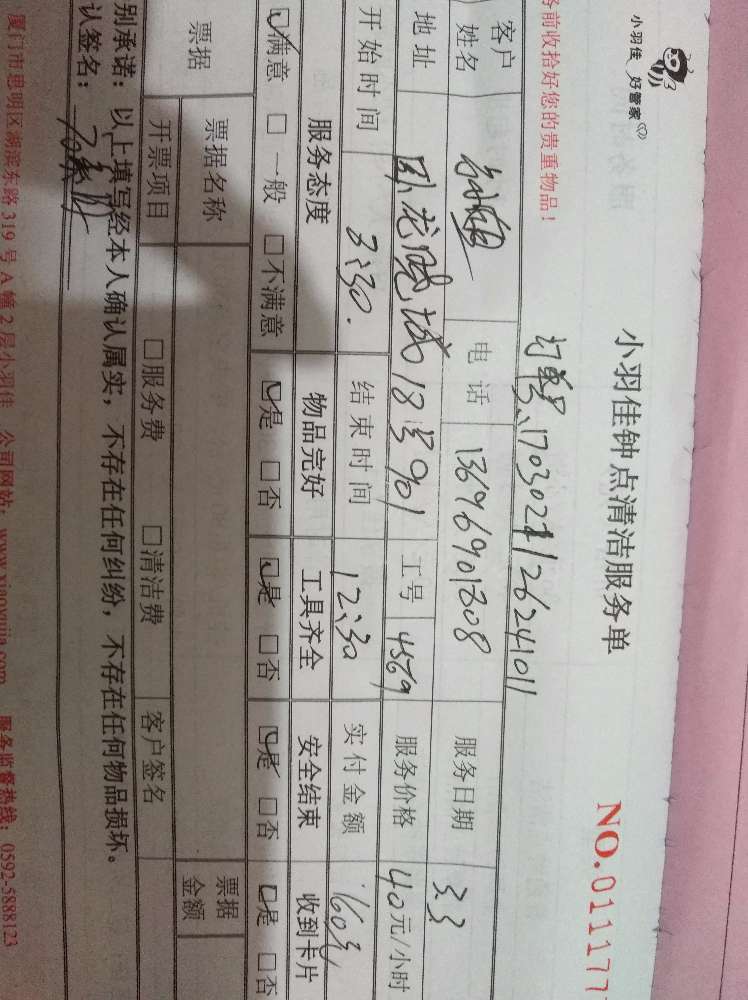 小羽佳 好管家
小羽佳钟点清洁服务单
NO.011177
务前收拾好您的贵重物品！
订单号:
客户姓名 电话 13696901308 服务日期 3.3
地址 卧龙晓城18号901 工号 4569 服务价格 40元/小时
开始时间 3:30. 结束时间 12:30 实付金额 160元
服务态度 物品完好 工具齐全 安全结束 收到卡片
☑满意 □一般 □不满意 ☑是 □否 ☑是 □否 ☑是 □否 ☑是 □否
票据 票据名称 票据金额
开票项目 □服务费 □清洁费 客户签名
别承诺：以上填写经本人确认属实，不存在任何纠纷，不存在任何物品损坏。
认签名：
厦门市思明区湖滨东路319号A幢2层小羽佳 公司网站：www.xiaoyujia.com 服务监督热线：0592-5888123